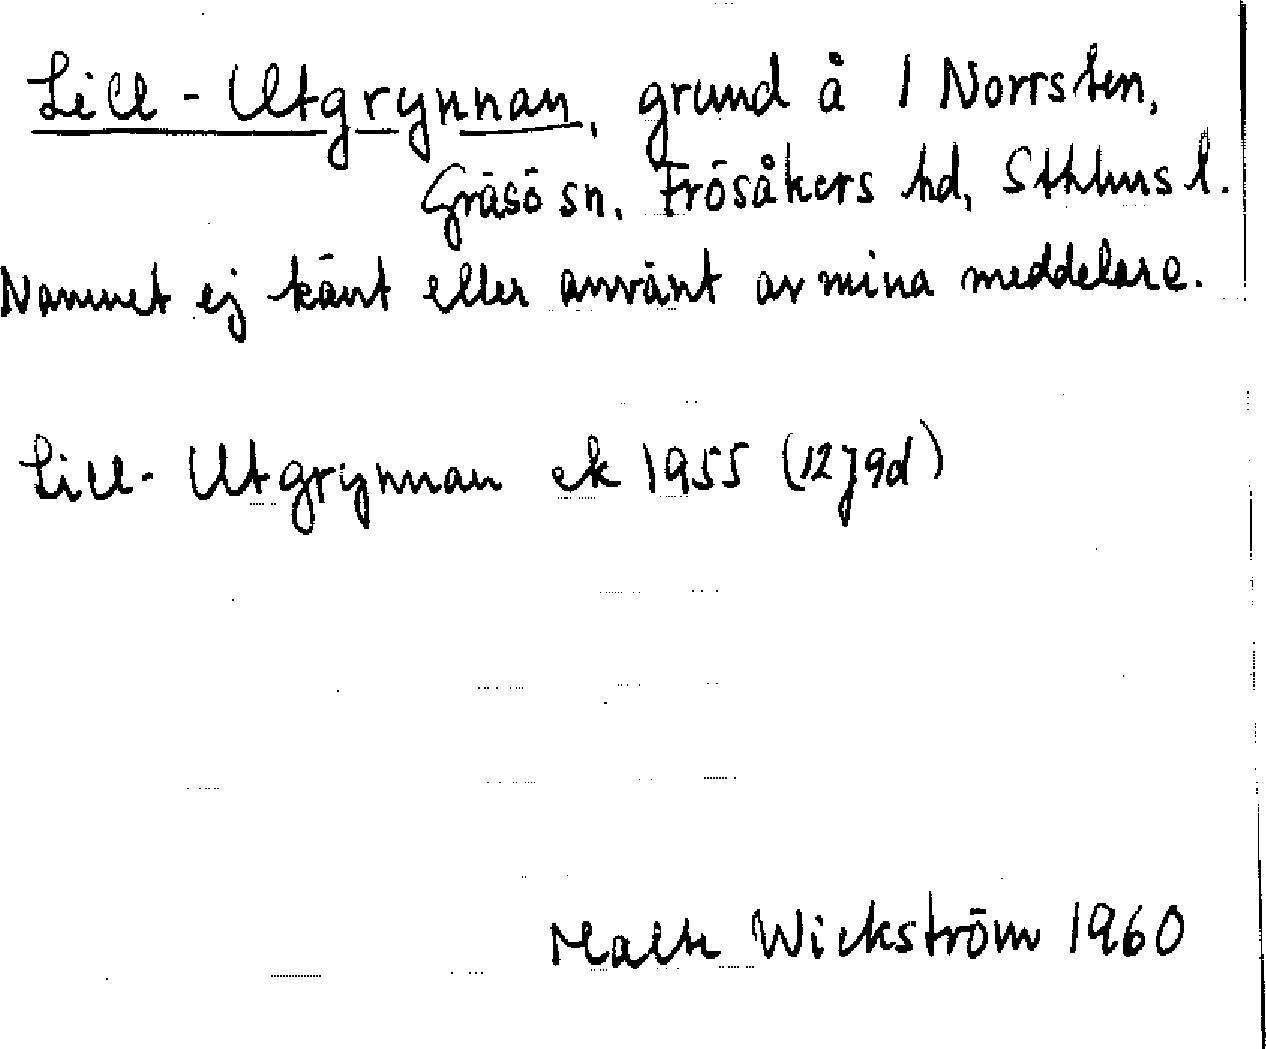 Lill-Utgrynnan, grund å 1 Norrsten,
Gräsö sn, Frösåkers hd, Sthlms l.
Namnet ej känt eller använt av mina meddelare.
Lill-Utgrynnan ek 1955 (12J9d)
Malte Wickström 1960